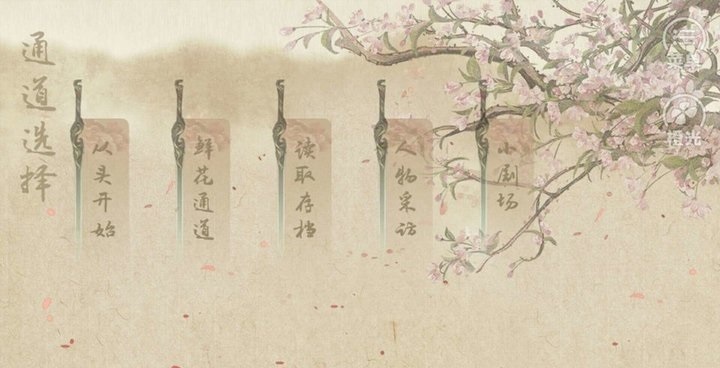 通道选择
从头开始
鲜花通道
读取存档
人物采访
小剧场
菜单
橙光